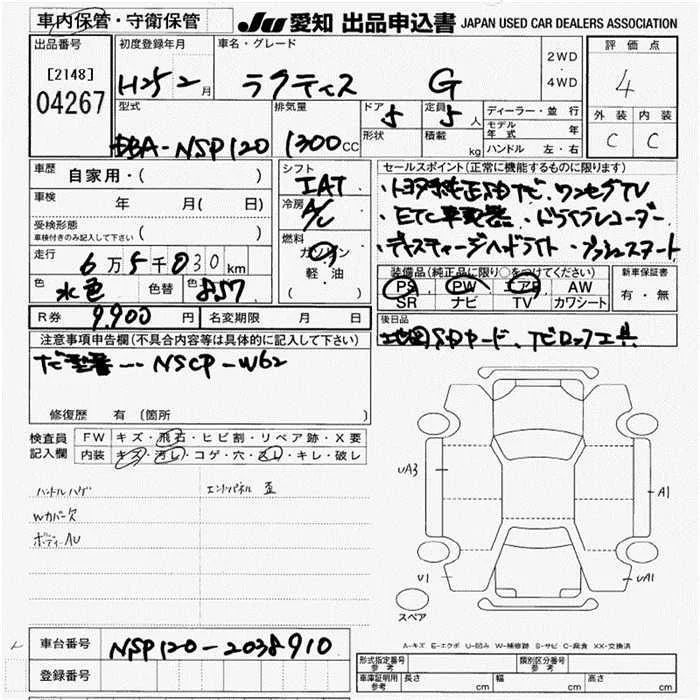 車内保管・守衛保管
JU 愛知 出品申込書 JAPAN USED CAR DEALERS ASSOCIATION
出品番号
[2148]
04267
初度登録年月
H25 2 月
車名・グレード
ラクティス G
2WD
・
4WD
評価点
4
外装 内装
C C
型式
DBA-NSP120
排気量
1300 CC
ドア
5
定員
5 人
形状
積載
kg
ディーラー・並行
モデル年式 年
ハンドル 左・右
車歴
自家用・( )
車検
年 月( 日)
受検形態
車検付きのみ記入して下さい ( )
走行
6万5千030km
色
水色
色替
色
8S7
シフト
IAT
冷房
A/C
燃料
ガソリン
軽油
( )
セールスポイント(正常に機能するものに限ります)
・トヨタ純正SDナビ.ワンセグTV
・ETC車載器 ・ドライブレコーダー
・ディスチャージヘッドライト ・プッシュスタート
装備品(純正品に限り○をつけてください)
PS PW エアB AW
SR ナビ TV カワシート
新車保証書
有・無
R券
9,900 円
名変期限 月 日
後日品
地図SDカード、ナビロック工具
注意事項申告欄(不具合内容等は具体的に記入して下さい)
ナビ型番…NSCP-W62
修復歴 有 (箇所 )
検査員
記入欄
FW キズ・飛石・ヒビ割・リペア跡・X要
内装 キズ・汚レ・コゲ・穴・スレ・キレ・破レ
ハンドルハゲ
エンドパネル 歪
Wカバー欠
ボディーAU
UA3
A1
U1
UA1
スペア
A-キズ E-エクボ U-凹み W-補修跡 S-サビ C-腐食 XX-交換済
車台番号
NSP120-2038910
登録番号
形式指定番号
参考
類別区分番号
参考
車庫証明用
参考
長さ cm 幅 cm 高さ cm